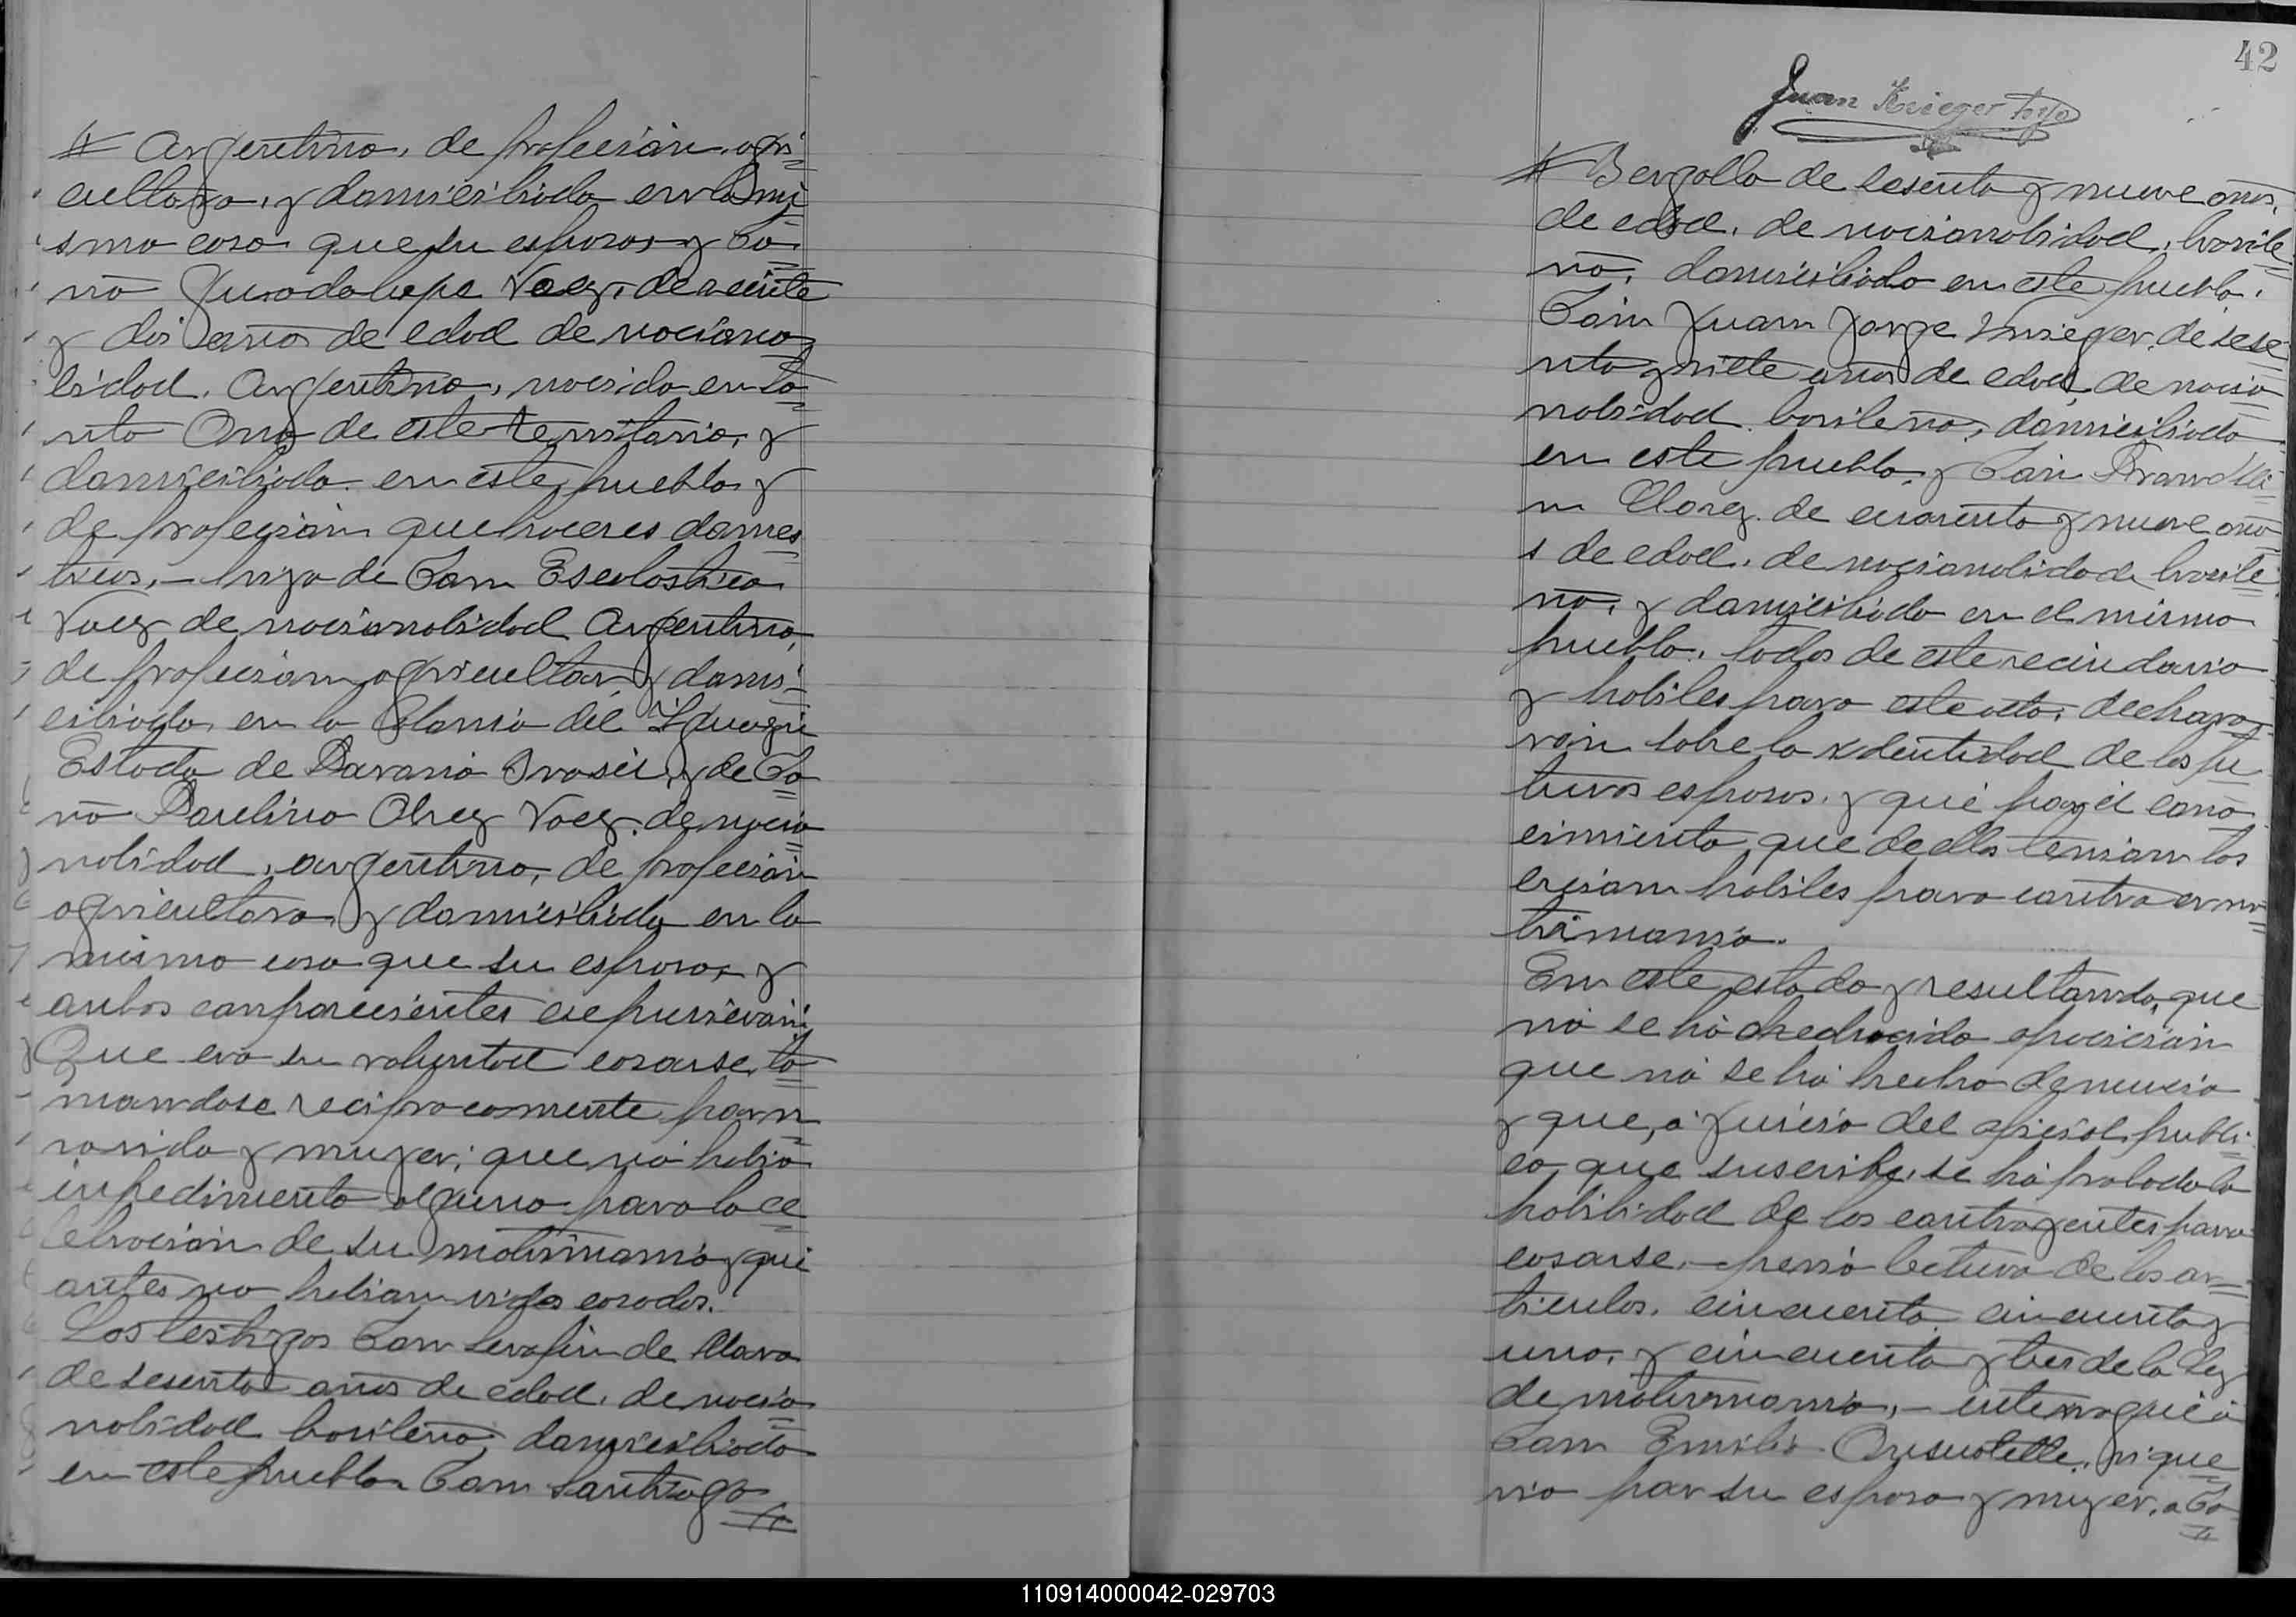 # Argentina, de profecion, agri
cultora, y domiciliada en la mi
sma casa que su esposo, y Do
ña Guadalupe Vaez, de veinte
y dos años de edad de naciona
lidad, Argentina, nacida en Sa
nta Ana de este territorio, y
domiciliada en este pueblo y
de profecion quehaceres domes
ticos, - hija de Don Escolastico
Vaez de nacionalidad Argentino,
de profecion agricultor, y domi
ciliado, en la Colonia del Iguazú
Estado de Parana Brasil, y de Do
ña Paulina Olrez Vaez, de nacio
nalidad, argentina, de profecion
agricultora, y domiciliada en la
misma casa que su esposo, y
anbos conparecientes expusieron:
Que era su voluntad casarse, to
mandose reciprocamente por m
arido y mujer; que no habia
inpedimento alguno para la ce
lebracion de su matrimonio y que
antes no habian sido casados.
Los testigos Don Serafin de Mora
de sesenta años de edad, de nacio
nalidad brasileño, domiciliado
en este pueblo Don Santiago #
42
Juan Krieger hijo
# Bergallo de sesenta y nueve años,
de edad, de nacionalidad, brasile
ño, domiciliado en este pueblo.
Don Juan Jorge Krieger, de sese
nta y siete años de edad, de nacio
nalidad brasileño, domiciliado
en este pueblo, y Don
de cuarenta y nueve año
s de edad, de nacionalidad brasile
ño, y domiciliado en el mismo
pueblo, todos de este vecindario
y habiles para este acto, declara
ron sobre la identidad de los fu
turos esposos, y que por el cono
cimiento que de ellos tenian los
creian habiles para contraer ma
trimonio.
En este estado y resultando, que
no se ha deducido oposicion
que no se ha hecho denuncia
y que, a juicio del oficial publi
co, que suscribe, se ha probado la
habilidad de los contrayentes para
casarse, - previa lectura de los ar
ticulos, cincuenta, cincuenta y
uno, y cincuenta y tres de la Ley
de matrimonio, - interrogué á
Don Emilio si que
ria por su esposa y mujer, a Do #
110914000042-029703